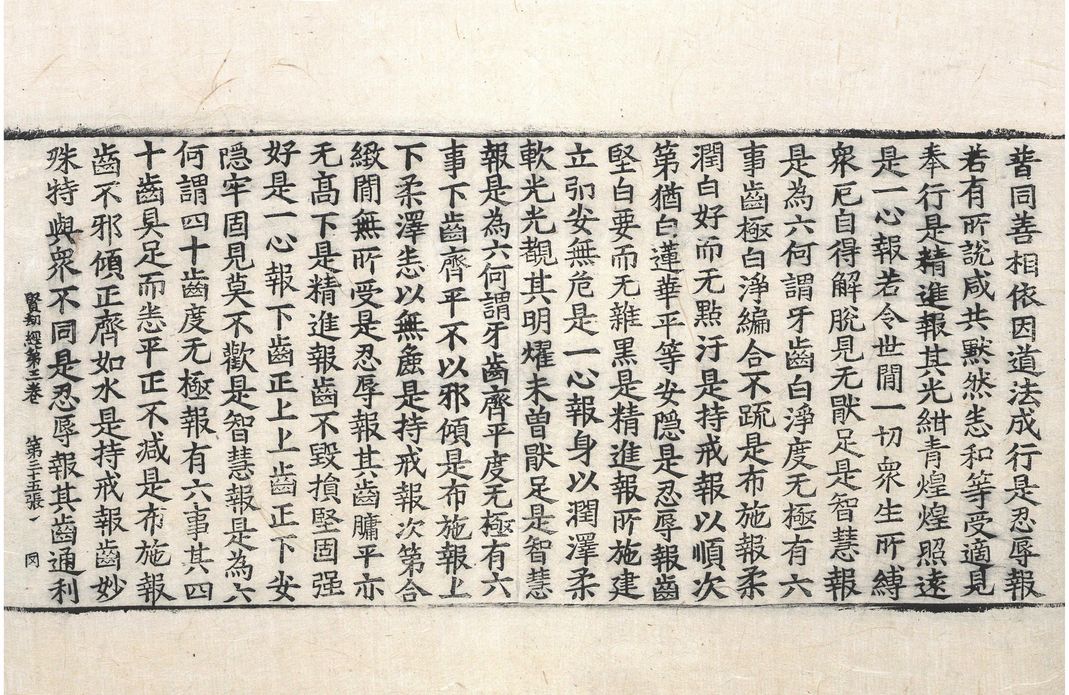 普同善相依因道法成行是忍辱報
若有所說咸共默然悉和等受適見
奉行是精進報其光紺青煌煌照遠
是一心報若令世閒一切衆生所縛
衆厄自得解脫見无猒足是智慧報
是為六何謂牙齒白淨度无極有六
事齒極白淨編合不踈是布施報柔
潤白好而无點汙是持戒報以順次
第猶白蓮華平等安隱是忍辱報齒
堅白要而无雜黑是精進報所施建
立卭安無危是一心報身以潤澤柔
軟光光觀其明耀未曾猒足是智慧
報是為六何謂牙齒齊平度无極有六
事下齒齊平不以邪傾是布施報上
下柔澤悉以無麁是持戒報次第合
緻閒無所受是忍辱報其齒𦟛平亦
无高下是精進報齒不毀損堅固强
好是一心報下齒正上上齒正下安
隱牢固見莫不歡是智慧報是為六
何謂四十齒度无極報有六事其四
十齒具足而悉平正不減是布施報
齒不邪傾正齊如水是持戒報齒妙
殊特與衆不同是忍辱報其齒通利
賢劫經第三卷 第三十五張